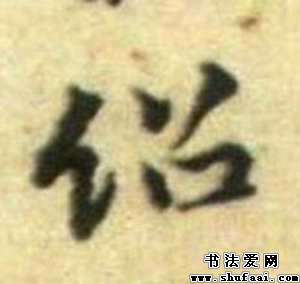 绍
书法爱网
www.shufaai.com